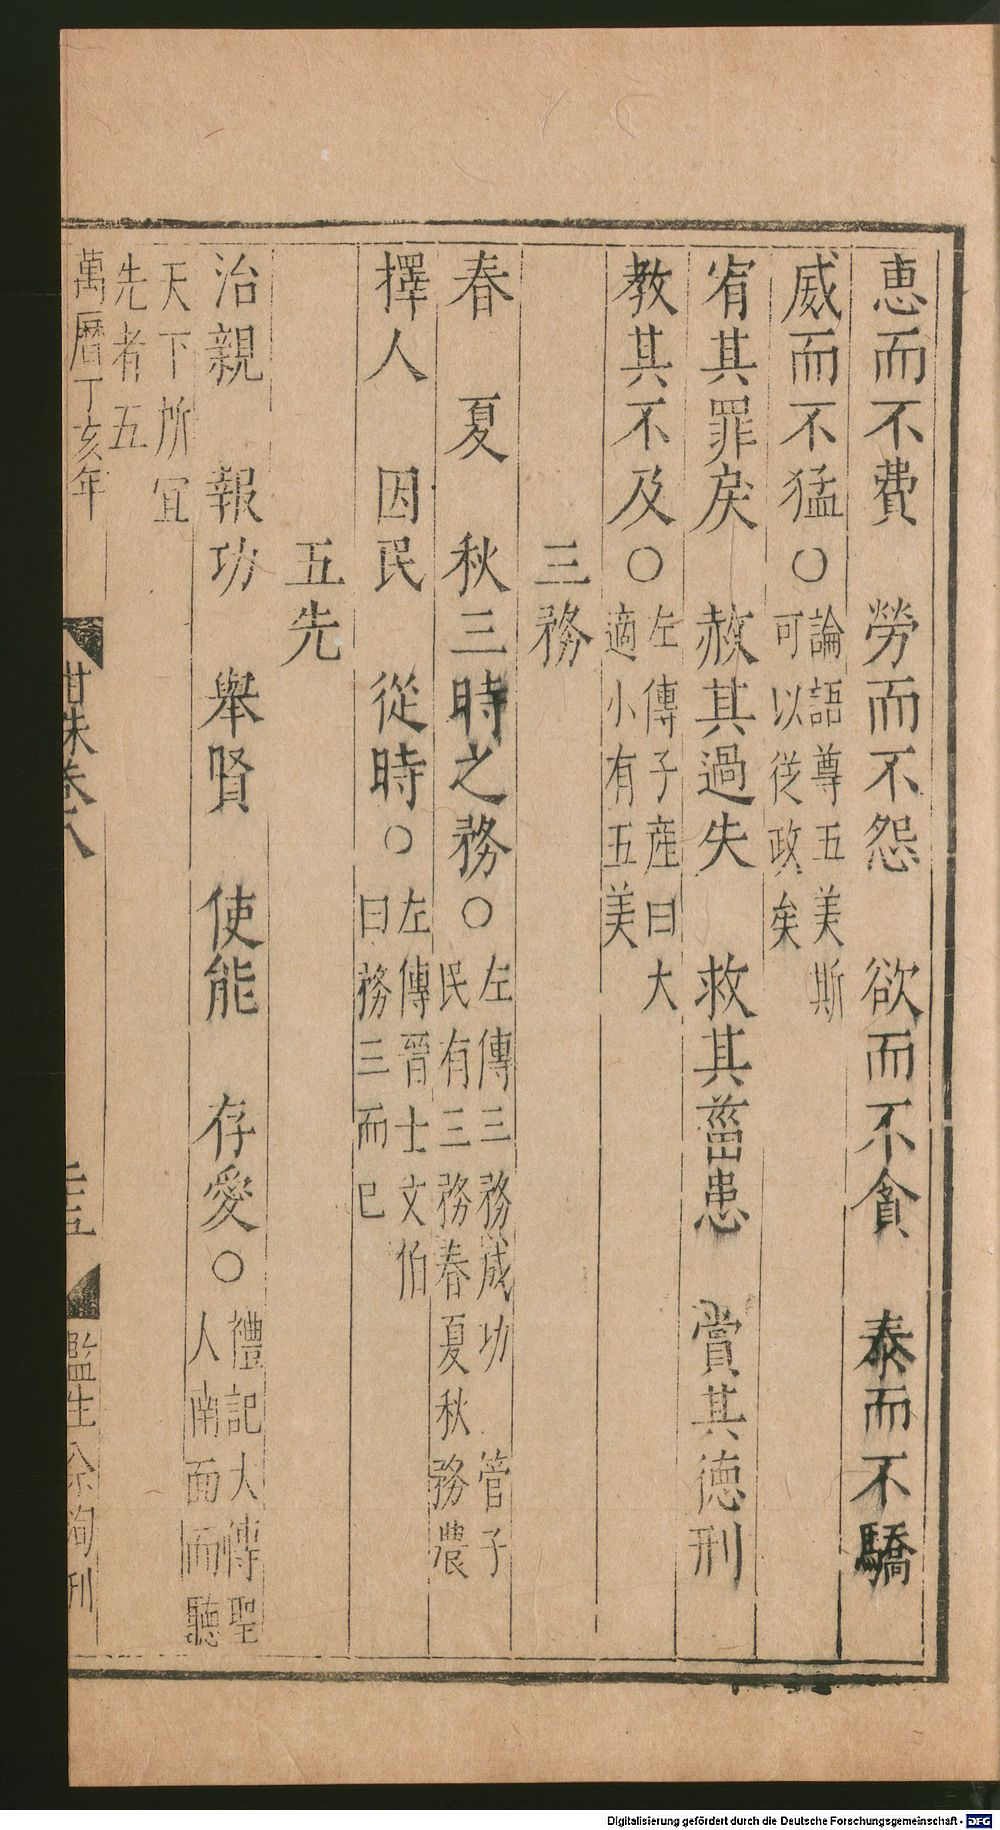 惠而不費　勞而不怨　欲而不貪　泰而不驕
威而不猛○論語尊五美斯
可以從政矣
宥其罪戾　赦其過失　救其菑患　賞其德刑
教其不及○左傳子產曰大
適小有五美
三務
春　夏　秋三時之務○左傳三務成功　管子
民有三務春夏秋務農
擇人　因民　從時○左傳晉士文伯
曰務三而已
五先
治親　報功　舉賢　使能　存愛○禮記大傳聖
人南面而聽
天下所宜
先者五
萬曆丁亥年　卷八　監生　洵刊
Digitalisierung gefördert durch die Deutsche Forschungsgemeinschaft - DFG